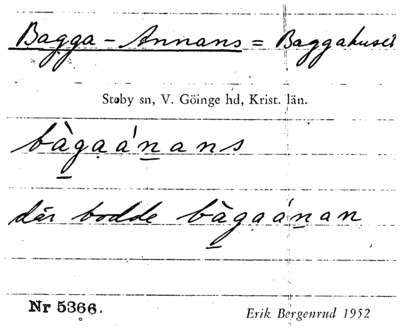 Bagga-Annans = Baggahuset
Stoby sn, V. Göinge hd, Krist. län.
bàgaánans
där bodde bàgaánan
Nr 5366.
Erik Bergenrud 1952